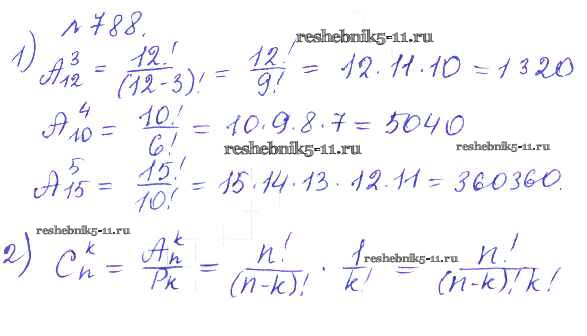 №788.
reshebnik5-11.ru
1) A₁₂³ = 12!/(12-3)! = 12!/9! = 12·11·10 = 1320
A₁₀⁴ = 10!/6! = 10·9·8·7 = 5040
reshebnik5-11.ru reshebnik5-11.ru
A₁₅⁵ = 15!/10! = 15·14·13·12·11 = 360360.
reshebnik5-11.ru
2) Cₙᵏ = Aₙᵏ/Pₖ = n!/(n-k)! · 1/k! = n!/(n-k)!k!
reshebnik5-11.ru